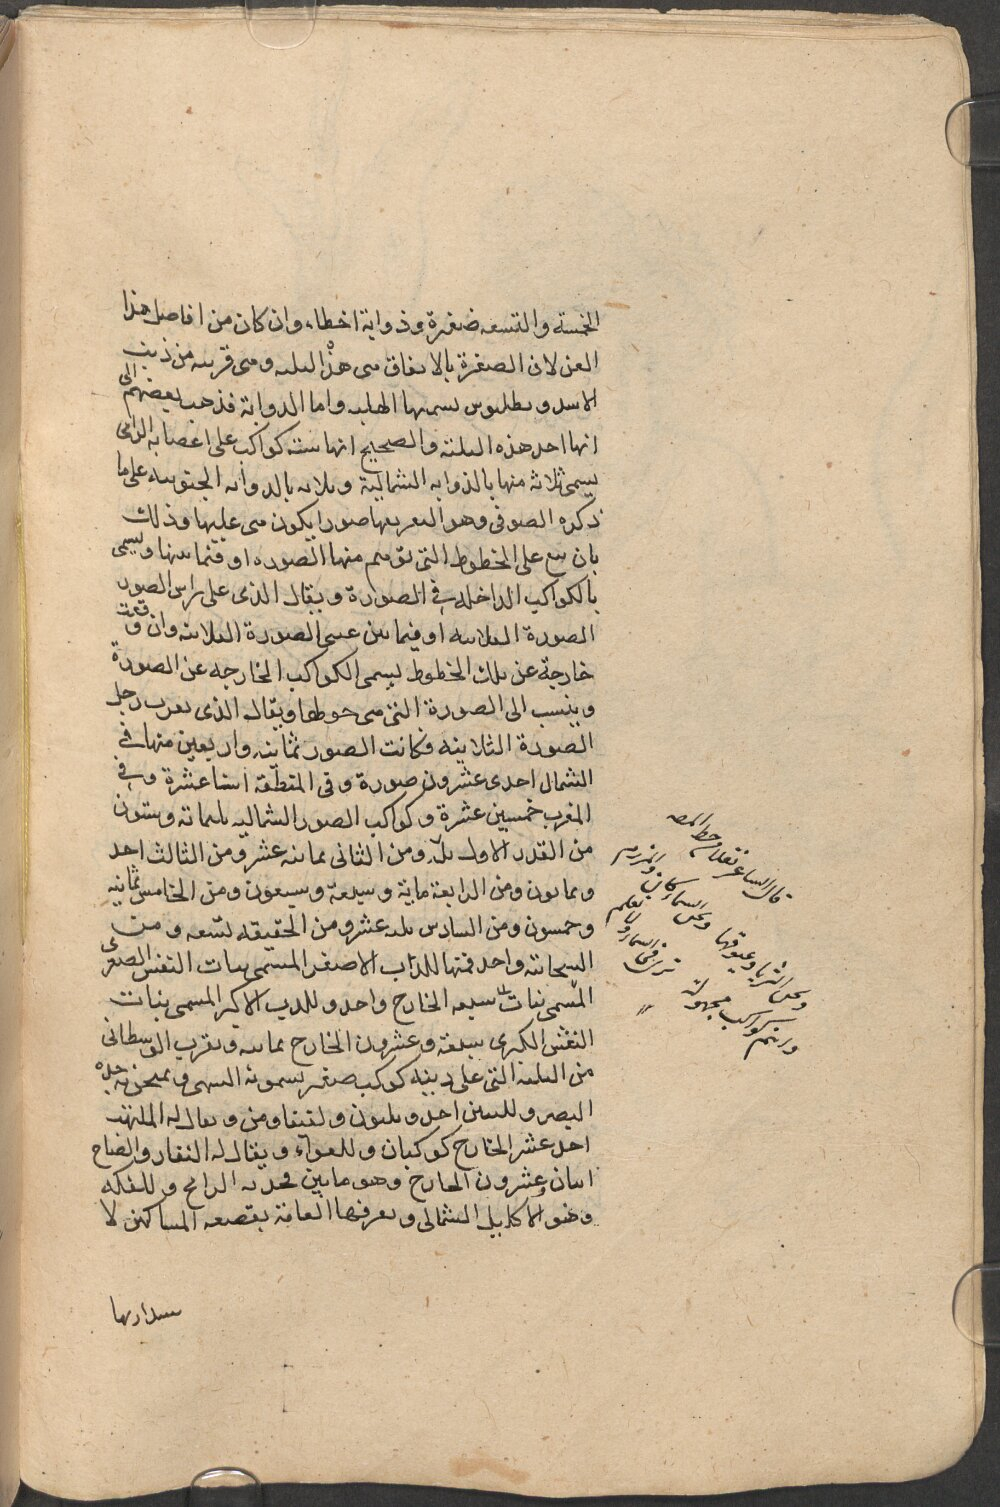 الخمسة والتسعه ضفيرة وذوابة اخطاء وان كان من افاضل هذا
الفن لان الصفرة بالاتفاق هى هذه الثلثه وهى قريبه من ذنب
الاسد وبطلميوس يسميها الهلبه واما الذوابة فذهب بعضهم الى
انها احد هذه الثلثه والصحيح انها سته كواكب على اعصابه الرامى
يسمى ثلاثه منها بالذوابه الشمالية وثلاثه بالذوابه الجنوبيه على ما
ذكره الصوفى وهو التعريفها صورا يكون هى عليها وذلك
بان يقع على الخطوط التى توهم منها الصوره او فيما بينها ويسمى
بالكواكب الداخله فى الصورة ويقال الذى على راس الصور
الصورة الفلانيه او فيما بين عينى الصورة الفلانيه وان وقعت
خارجة عن تلك الخطوط يسمى الكواكب الخارجه عن الصورة
وينسب الى الصورة التى هى حولها ويقال الذى بقرب رجل
الصورة الثلاينه فكانت الصور ثمانيه واربعين منها فى
الشمال احدى عشرون صورة وفى المنطقه اثنا عشرة وفى
المغرب خمسين عشرة وكواكب الصور الشماليه ثلثمائه وستون
من القدر الاول ثلثه ومن الثانى ثمانيه عشر ومن الثالث احد
وثمانون ومن الرابعة مايتة وسبعة وسبعون ومن الخامس ثمانيه
وخمسون ومن السادس ثلثه عشر ومن الحقيقه تسعه ومن
السحابيه واحد فمنها للداب الاصغر المسمى ببنات النعش الصغرى
المسمى بنات سبعه الخارج واحد وللدب الاكبر المسمى بنات
النعش الكبرى سبعة وعشرون الخارج ثمانيه وبقرب الوسطانى
من الثلثه التى على ذنبه كوكب صغير يسمونه السهى ويمتحن به حدة
البصر وللتنين احد وثلثون ولقيفاوس ويقال له الملتهب
احد عشر الخارج كوكبان وللعواء ويقال له النقار والصياح
اثنان وعشرون الخارج وهو ما بين فخديه الرامح وللفكه
وهو الاكليل الشمالى ويعرفها العامة بقصعه المساكين لا
قال الشاعر
ونحن الثريا وعيوقها ونحن السماكان
وانتم كواكب مجهولة ترى فى السماء ولا تعلم